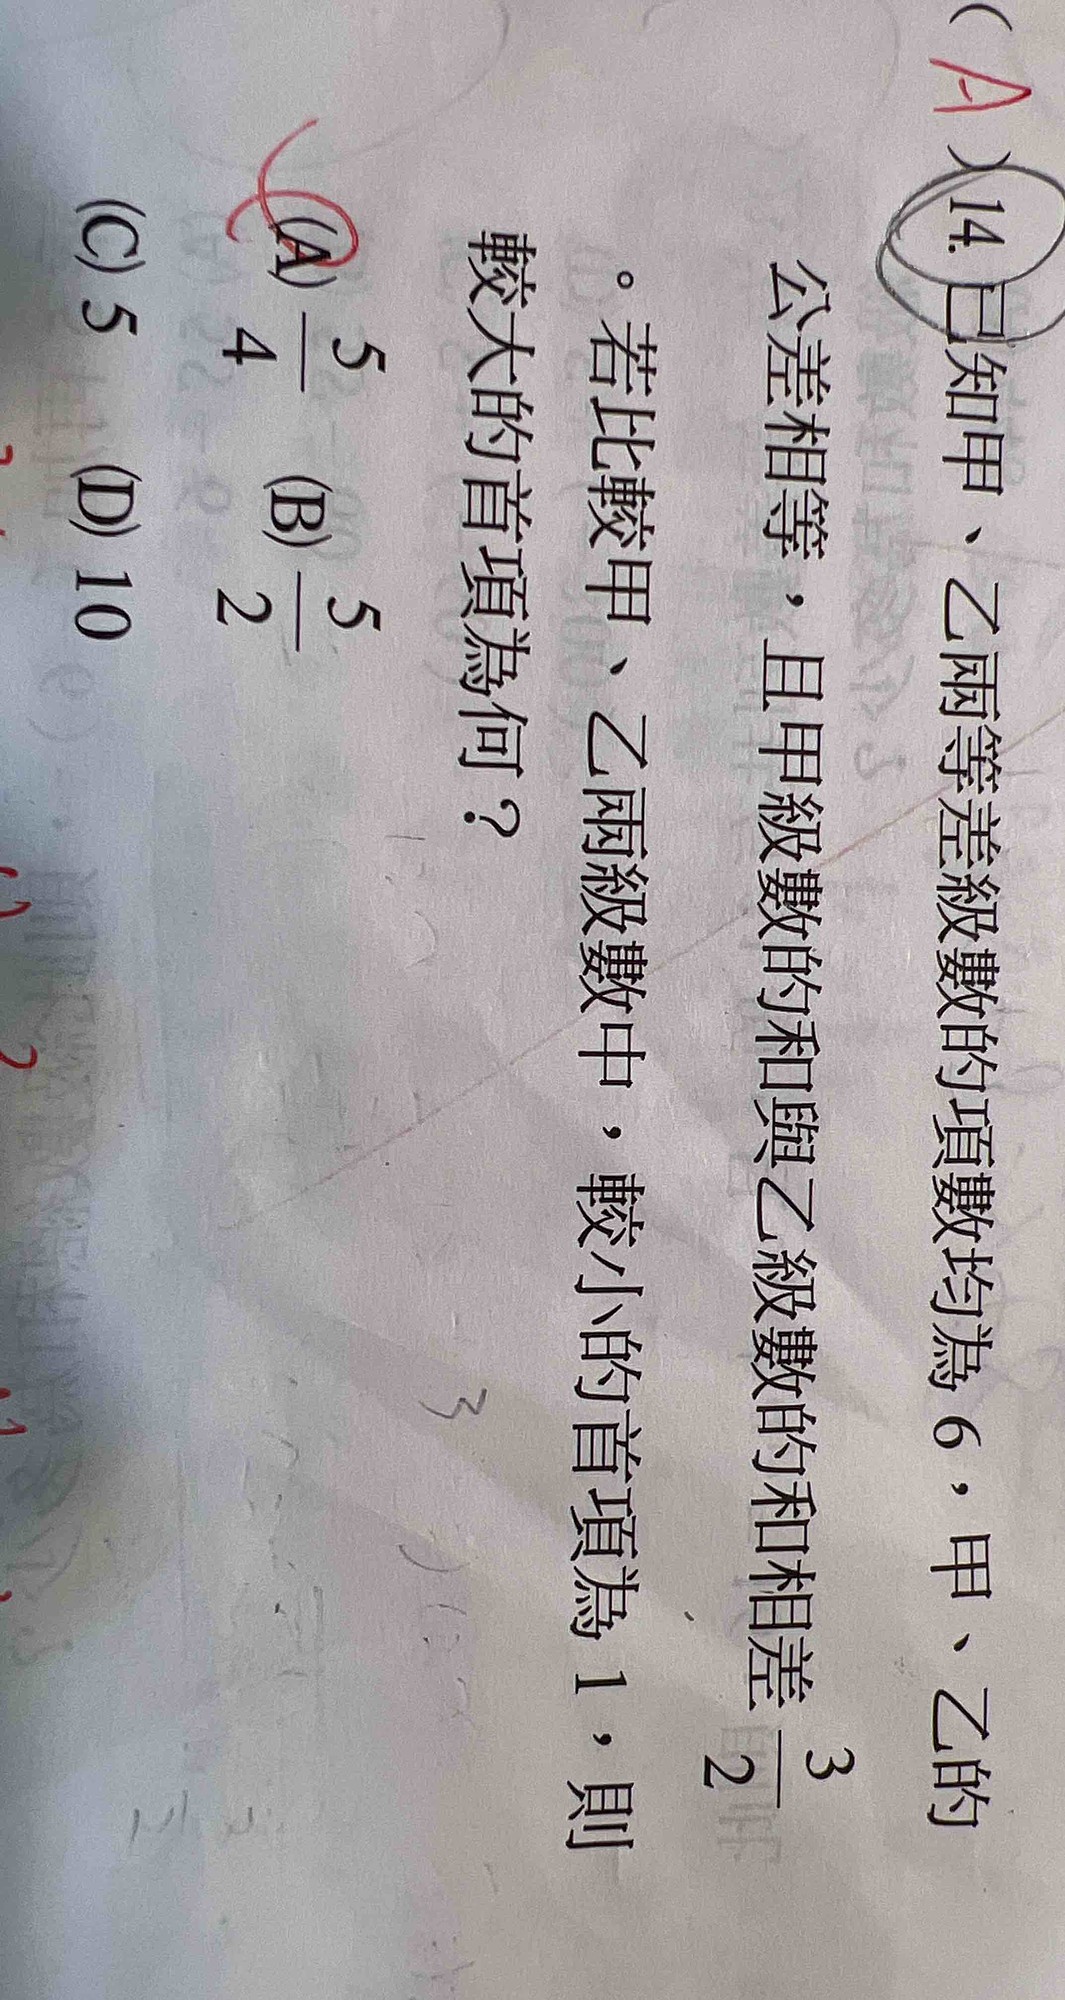 ( A ) 14. 已知甲、乙兩等差級數的項數均為 6，甲、乙的
公差相等，且甲級數的和與乙級數的和相差 3/2
。若比較甲、乙兩級數中，較小的首項為 1，則
較大的首項為何？
(A) 5/4 (B) 5/2
(C) 5 (D) 10
3